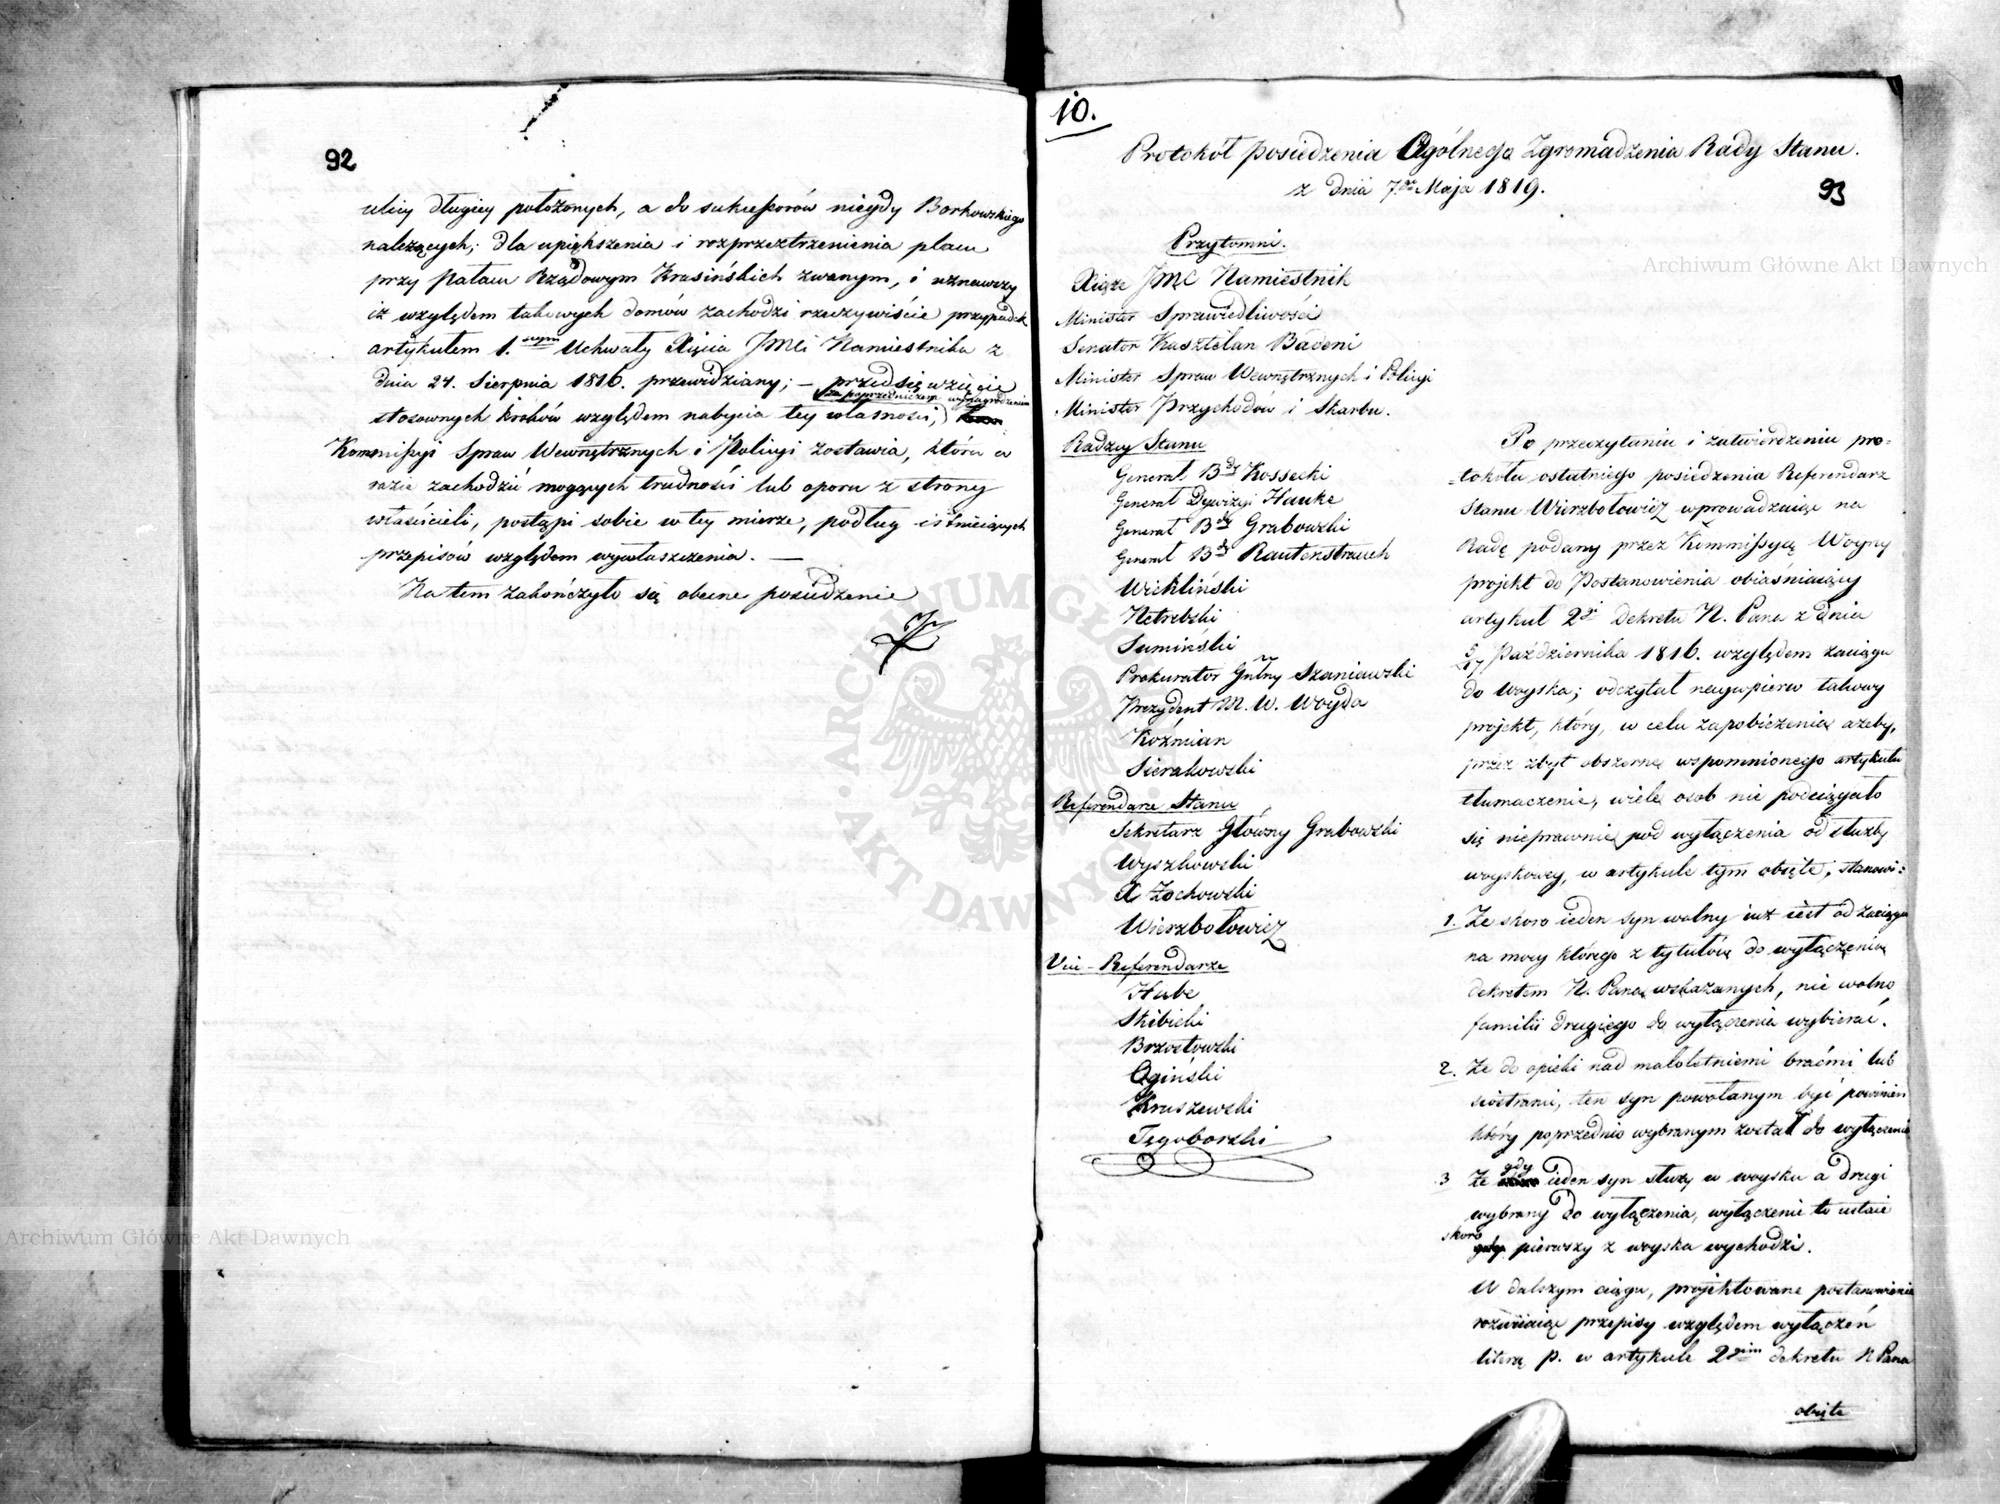 92
ulicy długiey położonych, a do sukcessorów niegdy Borkowskiego
należących; dla upiększenia i rozprzestrzenienia placu
przy Pałacu Rządowym Krasińskich zwanym, i uznawszy
iż względem takowych domów zachodzi rzeczywiście przypadek
artykułem 1.szym Uchwały Xięcia JMCi Namiestnika z
dnia 27. Sierpnia 1816. przewidziany; — przedsięwzięcie
za poprzedniczem wynagrodzeniem
stosownych kroków względem nabycia tey własności,
Kommissyi Spraw Wewnętrznych i Policyi zostawia, która w
razie zachodzić mogących trudności lub oporu z strony
właścicieli, postąpi sobie w tey mierze, podług istnieiących
przepisów względem wywłaszczenia. —
Na tem zakończyło się obecne posiedzenie
10.
Protokół posiedzenia Ogólnego Zgromadzenia Rady Stanu.
z dnia 7go Maja 1819.
93
Przytomni.
Xiąże JMC Namiestnik
Minister Sprawiedliwości
Senator Kasztelan Badeni
Minister Spraw Wewnętrznych i Policyi
Minister Przychodów i Skarbu.
Radzcy Stanu
Generał Bdy Kossecki
Generał Dywizyi Hauke
Generał Bdy Grabowski
Generał Bdy Rautenstrauch
Wichliński
Netrebski
Sumiński
Prokurator Gnlny Szaniawski
Prezydent M. W. Woyda
Koźmian
Sierakowski
Referendarze Stanu
Sekretarz Główny Grabowski
Wyszkowski
X Żochowski
Wierzbołowicz
Vice-Referendarze
Hube
Skibicki
Brzostowski
Ogiński
Kruszewski
Tęgoborski
Po przeczytaniu i zatwierdzeniu pro-
-tokółu ostatniego posiedzenia Referendarz
Stanu Wierzbołowicz wprowadzaiąc na
Radę podany przez Kommissyą Woyny
projekt do Postanowienia obiaśniaiący
artykuł 2gi Dekretu N. Pana z dnia
5/17 Października 1816. względem zaciągu
do woyska; odczytał nayпierw takowy
projekt, który, w celu zapobieżenia ażeby,
przez zbyt obszerne wspomnionego artykułu
tłumaczenie, wiele osob nie podciągało
się nieprawnie pod wyłączenia od służby
woyskowey, w artykule tym obięte, stanowi:
1. Że skoro ieden syn wolny iuż iest od zaciągu
na mocy którego z tytułów do wyłączenia
dekretem N. Pana wskazanych, nie wolno
familii drugiego do wyłączenia wybierać.
2. Że do opieki nad małoletniemi braćmi lub
siostrami, ten syn powołanym być powinien
który poprzednio wybranym został do wyłączenia
3 Że gdy ieden syn służy w woysku a drugi
wybrany do wyłączenia, wyłączenie to ustaie
skoro pierwszy z woyska wychodzi.
W dalszym ciągu, projektowane postanowienie
rozwiiaiąc przepisy względem wyłączeń
literą p. w artykule 2gim dekretu N Pana
obięte
Archiwum Główne Akt Dawnych
Archiwum Główne Akt Dawnych
ARCHIWUM GŁÓWNE AKT DAWNYCH